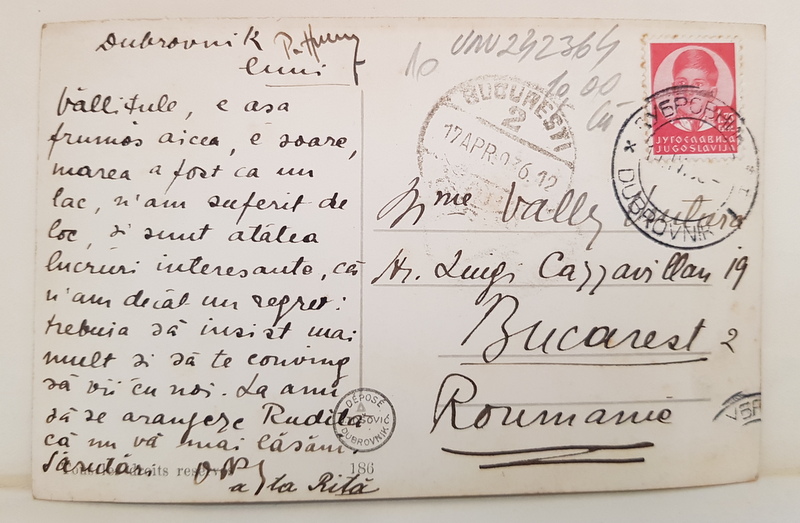 Dubrovnik
luni
Vallițule, e așa
frumos aicea, e soare,
marea a fost ca un
lac, n'am suferit de
loc, și sunt atâtea
lucruri interesante, că
n'am decât un regret:
trebuia să insist mai
mult și să te conving
să vii cu noi. La anu
să se aranjeze Rudița
că nu vă mai lăsăm.
a ta Rita
Tous droits reservés 186
DÉPOSÉ
DUBROVNIK
UNV242364
10
10 00
BUCUREȘTI
2
17 APR. 936. 12
ДУБРОВНИК
DUBROVNIK
ЈУГОСЛАВИЈА
JUGOSLAVIJA
Mme Vally
Str. Luigi Cazzavillan 19
Bucarest 2
Roumanie